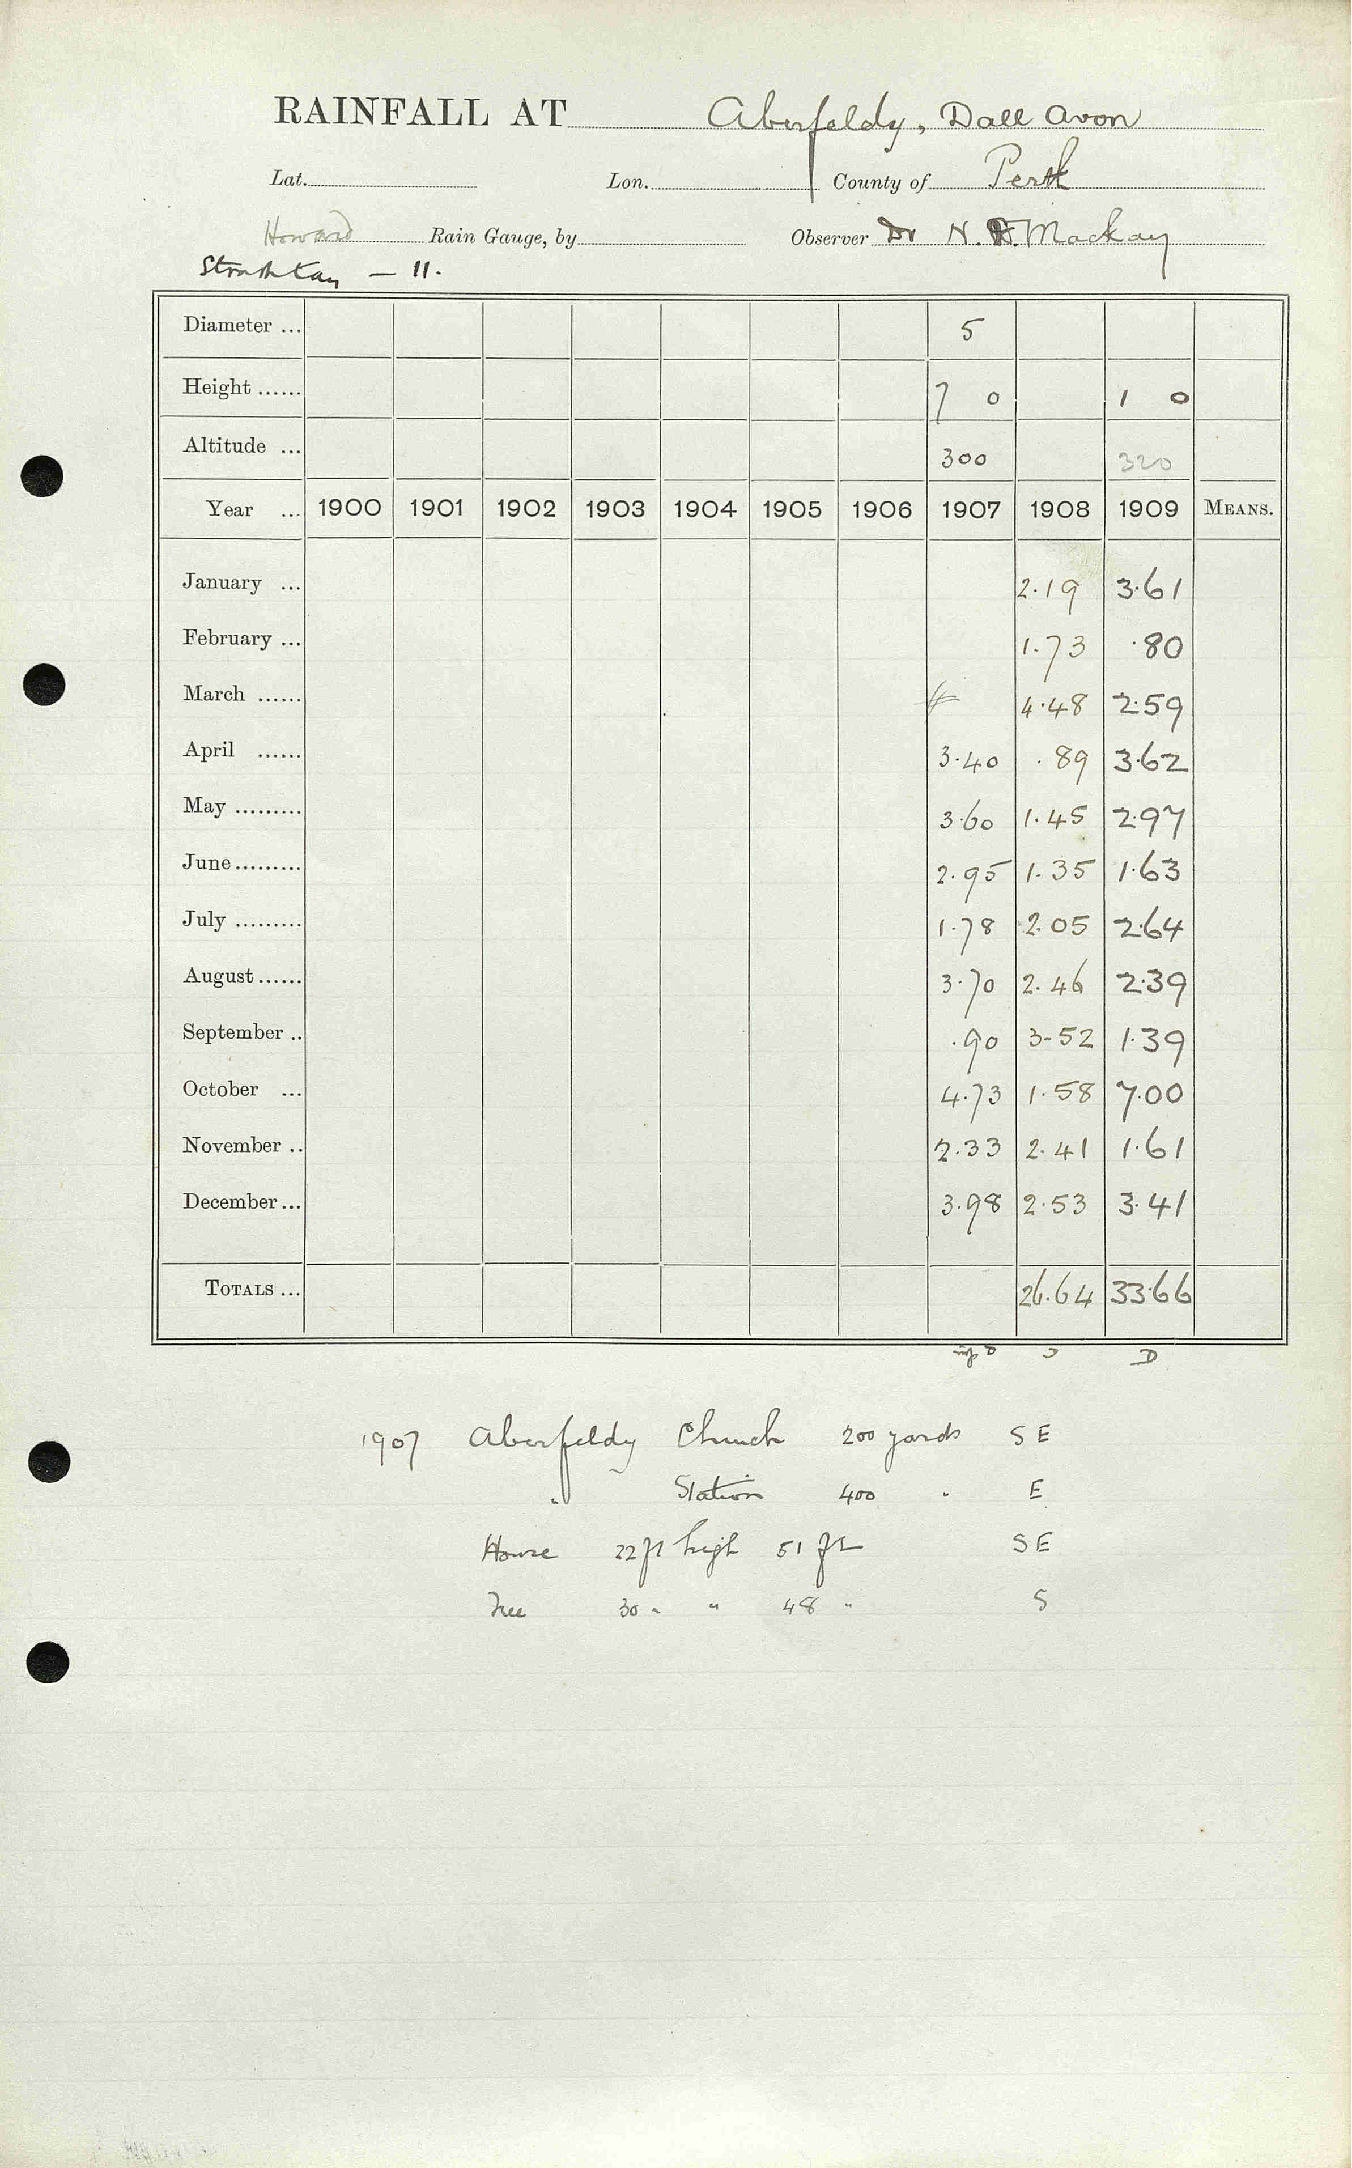 RAINFALL AT Aberfeldy, Dall Avon
Lat. Lon. County of Perth
Howard Rain Gauge, by Observer Dr N. Mackay
Strathtay — 11.
Diameter ... 5
Height ...... 7 0 1 0
Altitude ... 300 320
Year ... 1900 1901 1902 1903 1904 1905 1906 1907 1908 1909 MEANS.
January ... 2.19 3.61
February ... 1.73 .80
March ...... 4.48 2.59
April ...... 3.40 .89 3.62
May ......... 3.60 1.45 2.97
June ......... 2.95 1.35 1.63
July ......... 1.78 2.05 2.64
August ...... 3.70 2.46 2.39
September .. .90 3-52 1.39
October ... 4.73 1.58 7.00
November .. 2.33 2.41 1.61
December ... 3.98 2.53 3.41
TOTALS ... 26.64 33.66
D
1907 Aberfeldy Church 200 yards S E
" Station 400 " E
House 22 ft high 51 ft S E
Tree 30 " " 48 " S